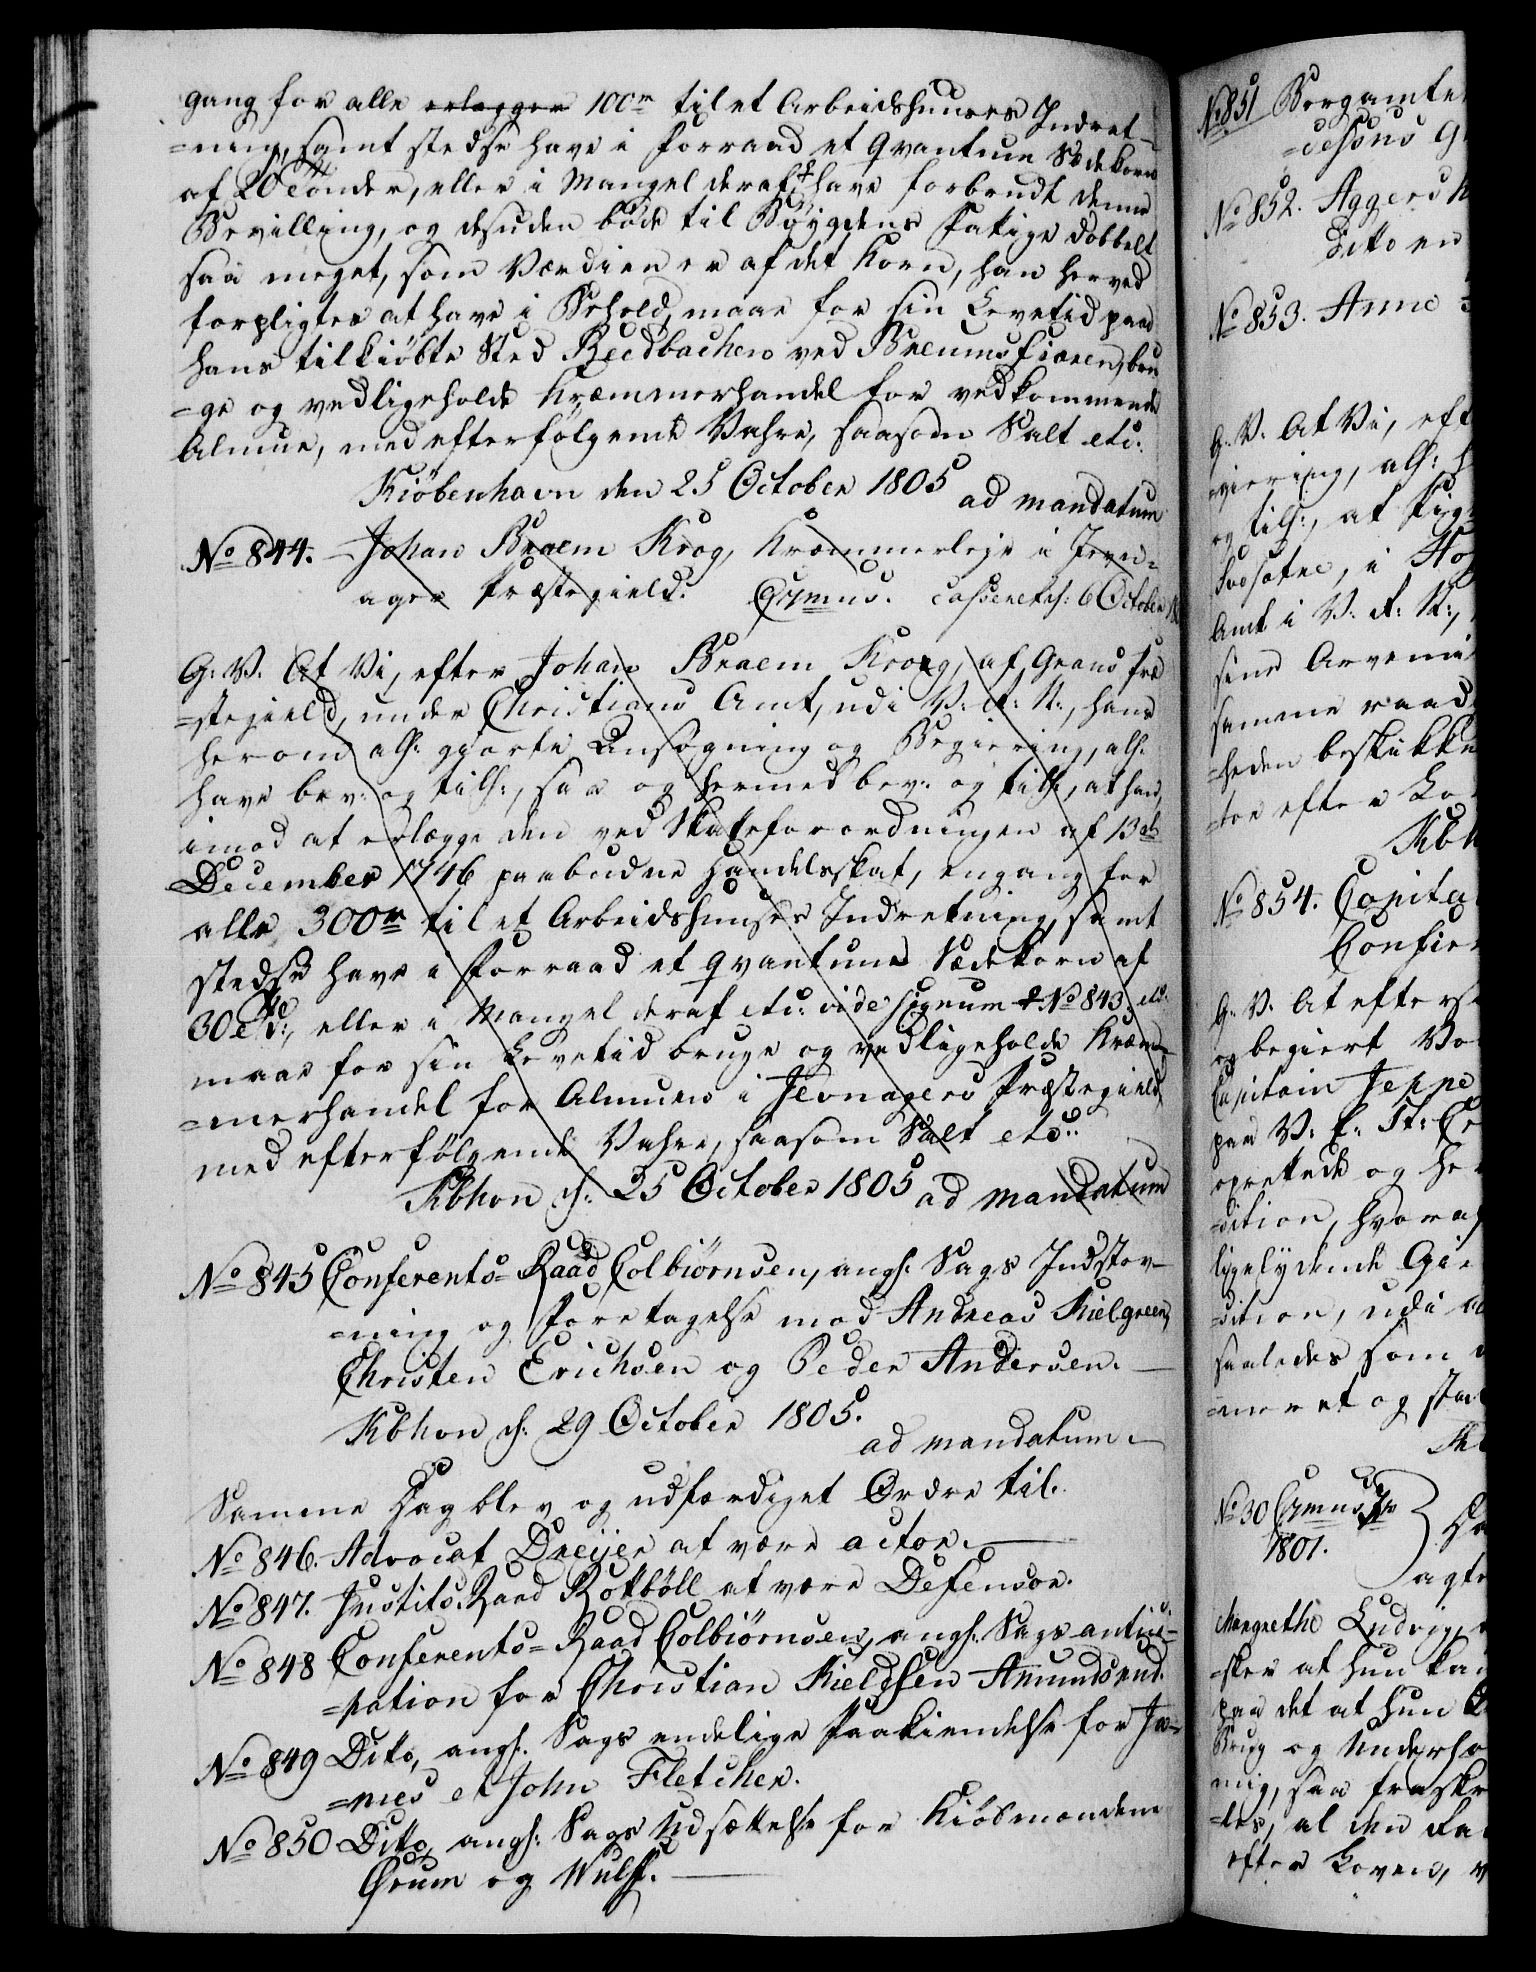 gang for alle erlægger 100 rd til et Arbeidshuuses Indret-
=ning, samt stedse have i Forraad et Qvantum Sædekorn
af 20 Tønder, eller i Mangel deraf have forbrudt denne
Bevilling, og desuden bøde til Bøygdens Fatige dobbelt
saa meget, som Værdien er af det Korn, han herved
forpligtes at have i Behold, maae for sin Levetid paa
hans tilkiøbte Sted Reedbachen ved Breums, bru
=ge og vedligeholde Kræmmerhandel for vedkommende
Almue, med efterfølgende Vahre, saasom Salt etc:
Kiøbenhavn den 25 October 1805 ad mandatum
No 844. Johan Braem Krog, Kræmmerleje i Jevn-
ager Præstegield. casseret d: 6 October
G: V: At Vi, efter Johan Braem Krog, af Grans Præ
=stegield, under Christians Amt, udi V: R: N:, hans
herom all: giorte Ansøgning og Begiering, all:
have bev: og till:, saa og hermed bev: og till:, at han,
imod at erlægge den ved Skatteforordningen af 13de
December 1746 paabudne Handelsskat, engang for
alle 300 rd til et Arbeidshuuses Indretning, samt
stedse have i Forraad et Qvantum Sædekorn af
30 Td:, eller i Mangel deraf etc: vide signum No 843, etc:
maae for sin Levetid bruge og vedligeholde Kræm-
=merhandel for Almuen i Jevnagers Præstegield,
med efterfølgende Vahre, saasom Salt etc:
Kbhvn d: 25 October 1805 ad mandatum
No 845 Conferents=Raad Colbiørnsen, angl: Sags Indstev-
=ning og Foretagelse mod Andreas Kielgreen,
Christen Erichsen og Peder Andersen.
Kbhvn d: 29 October 1805.
ad mandatum.
Samme Dag blev og udfærdiget Ordre til.
No 846. Advocat Dreijer at være actor.
No 847. Justits Raad Rottböll at være Defensor.
No 848 Conferents=Raad Colbiørnsen, angl: Sags antici-
=pation for Christian Kieldsen Amundsrud.
No 849 Dito, angl: Sags endelige Paakiendelse for Ja-
=mes et John Fletcher.
No 850 Dito, angl: Sags Udsættelse for Kiøbmændene
Ørum og Wulff.
No 851 Bergamte
No 852. Aggers
Dito en
No 853. Anne
G: V: At Vi, eft
og till:, at
i
Amt i V: R: N:,
sine Arveni
samme raad
=heden beskikke
=tor efter Lo
Kbh
No 854. Capita
Confir
G: V: At efter
og begiert Vo
Capitain Jeppe
paa V: F:
oprettede og he
=sition, hvoraf
ligelydende Gie
=sition, udi a
saaledes som
og
No 30
1801.
agte
Margrethe Ludvig,
=sker at hun kan
paa det at hun
Brug og Underho
mig, saa
=les, al den
efter Loven, v